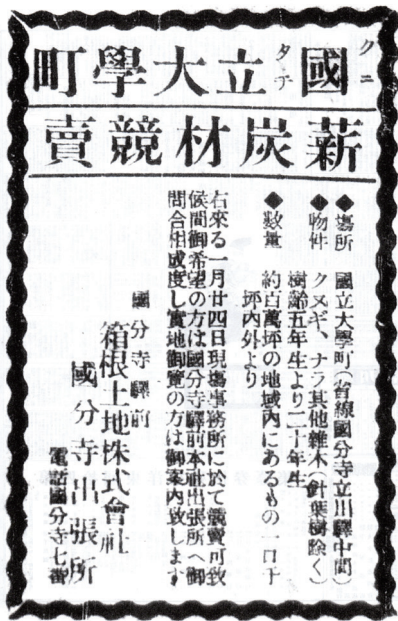 國立大學町
クニ タチ
薪炭材競賣
◆場所 國立大學町(省線國分寺立川驛中間)
◆物件 クヌギ、ナラ其他雜木(針葉樹除く)
樹齡五年生より二十年生
◆數量 約百萬坪の地域内にあるもの一口千
坪内外より
右來る一月廿四日現場事務所に於て競賣可致
候間御希望の方は國分寺驛前本社出張所へ御
問合相成度し實地御覽の方は御案内致します
國分寺驛前
箱根土地株式會社
國分寺出張所
電話國分寺七番